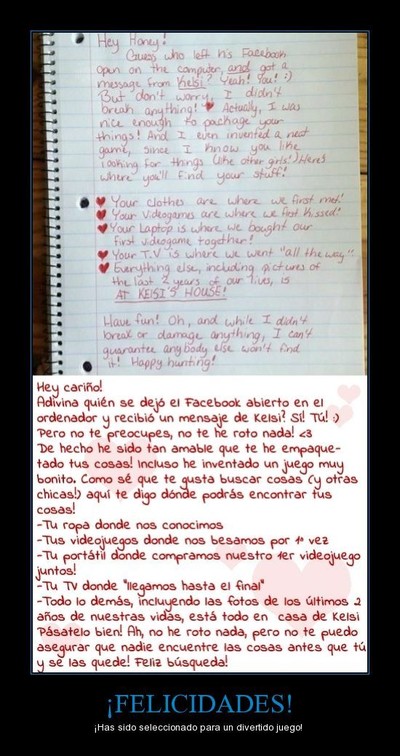 Hey Honey!
Guess who left his Facebook
open on the computer, and got a
message from Kelsi? Yeah! You! :)
But don't worry, I didn't
break anything! ♥ Actually, I was
nice enough to package your
things! And I even invented a neat
game, since I know you like
looking for things (like other girls!) Here's
where you'll find your stuff!
♥ Your clothes are where we first met!
♥ Your videogames are where we first kissed!
♥ Your Laptop is where we bought our
first videogame together!
♥ Your T.V is where we went "all the way".
♥ Everything else, including pictures of
the last 2 years of our lives, is
AT KELSI'S HOUSE!
Have fun! Oh, and while I didn't
break or damage anything, I can't
guarantee anybody else won't find
it! Happy hunting!
Hey cariño!
Adivina quién se dejó el Facebook abierto en el
ordenador y recibió un mensaje de Kelsi? Sí! Tú! :)
Pero no te preocupes, no te he roto nada! <3
De hecho he sido tan amable que te he empaque-
tado tus cosas! Incluso he inventado un juego muy
bonito. Como sé que te gusta buscar cosas (y otras
chicas!) aquí te digo dónde podrás encontrar tus
cosas!
-Tu ropa donde nos conocimos
-Tus videojuegos donde nos besamos por 1ª vez
-Tu portátil donde compramos nuestro 1er videojuego
juntos!
-Tu TV donde "llegamos hasta el final"
-Todo lo demás, incluyendo las fotos de los últimos 2
años de nuestras vidas, está todo en casa de Kelsi
Pásatelo bien! Ah, no he roto nada, pero no te puedo
asegurar que nadie encuentre las cosas antes que tú
y se las quede! Feliz búsqueda!
¡FELICIDADES!
¡Has sido seleccionado para un divertido juego!